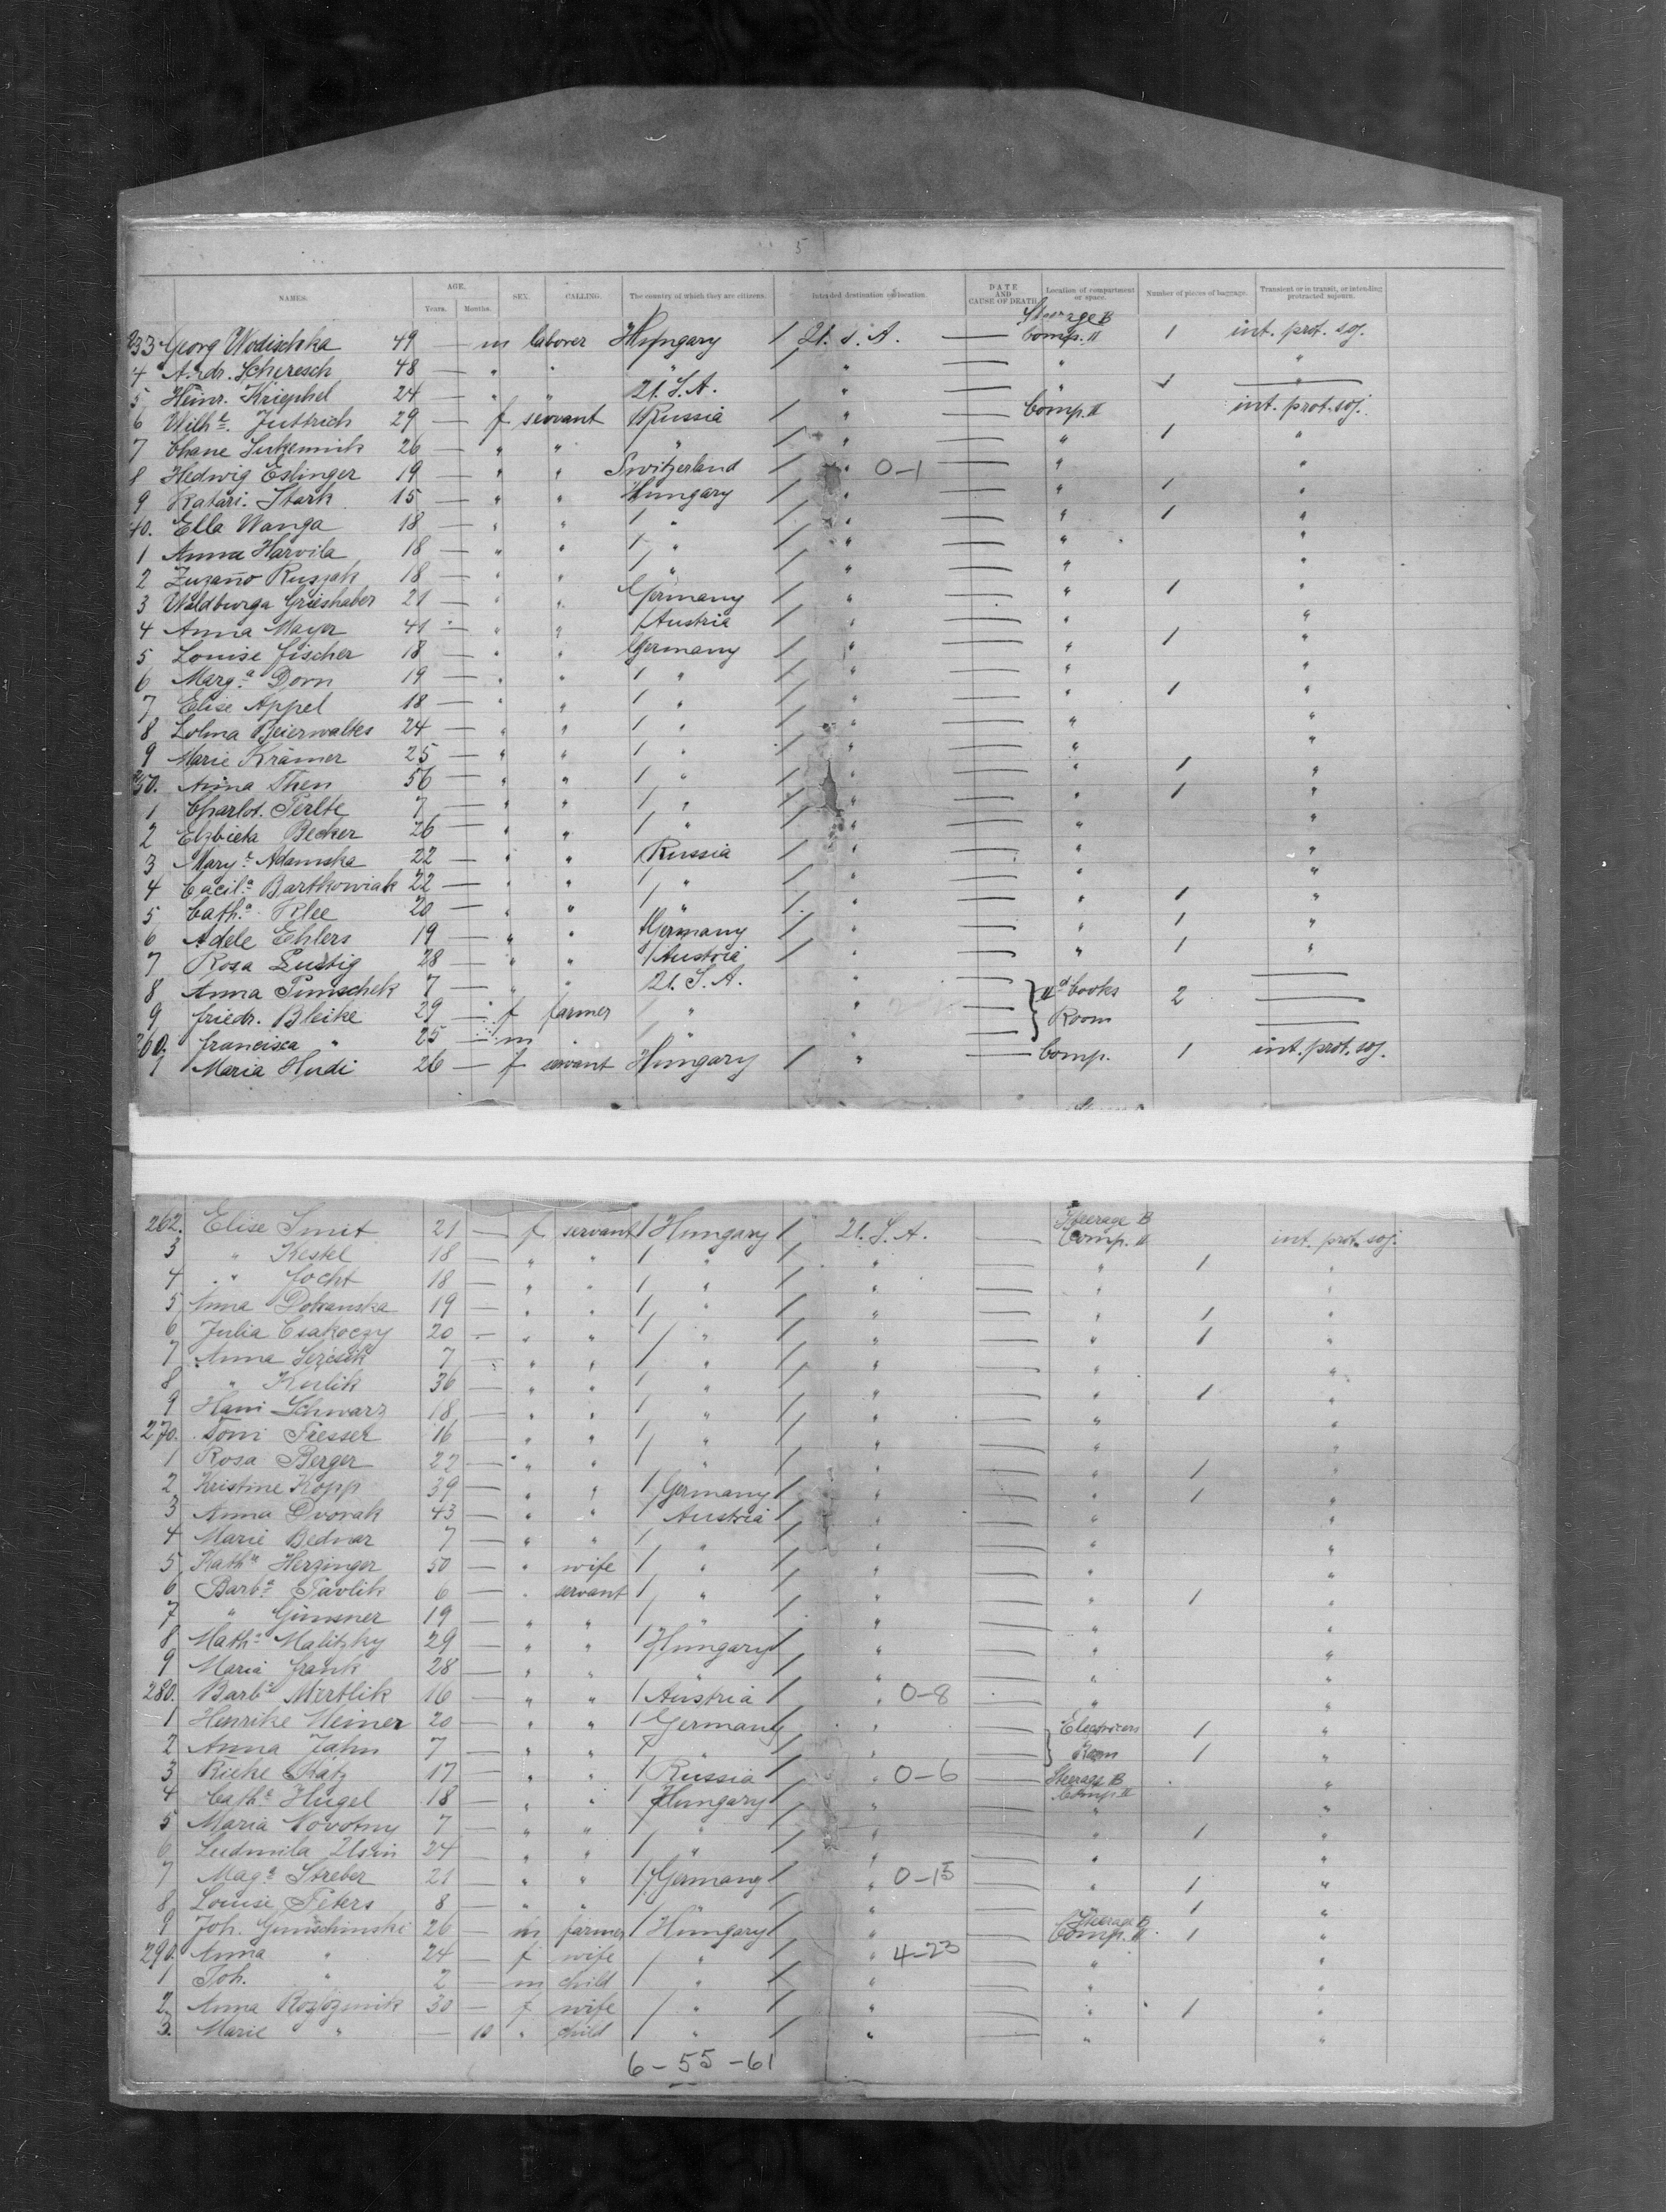 5
NAMES. AGE. Years. Months. SEX. CALLING. The country of which they are citizens. Intended destination or location. DATE AND CAUSE OF DEATH. Location of compartment or space. Number of pieces of baggage. Transient or in transit, or intending protracted sojourn.
Steerage B
233 Georg Wodischka 49 — m laborer Hungary / U.S.A. — Comp. II 1 int. prot. soj.
4 Andr. Scheresch 48 — " " " / " — " "
5 Heinr. Kriephel 24 — " " U.S.A. " — " 1 —
6 Wilh. Juttrich 29 — f servant Russia / " — Comp. II int. prot. soj.
7 Chane 26 — " " " / " — " 1 "
8 Hedwig Eslinger 19 — " " Switzerland / " 0-1 — " "
9 Katari. Stark 15 — " " Hungary / " — " 1 "
40. Ella Wanga 18 — " " / " / " — " 1 "
1 Anna Harvila 18 — " " / " / " — " "
2 Zuzano Ruszak 18 — " " / " / " — " "
3 Waldburga Grieshaber 21 — " " Germany " — " 1 "
4 Anna Mayer 41 — " " / Austria / " — " "
5 Louise Fischer 18 — " " Germany / " — " 1 "
6 Marg.a Dorn 19 — " " / " / " — " "
7 Elise Appel 18 — " " / " / " — " 1 "
8 Beierwaltes 24 — " " / " / " — " "
9 Marie Krämer 25 — " " / " / " — " "
250. Anna Then 56 — " " / " / " — " 1 "
1 Charlot. Perlte 7 — " " / " / " — " 1 "
2 Elzbieta Becker 26 — " " / " / " — " "
3 Mary. Adamska 22 — " " / Russia / " — " "
4 Cäcil.a Bartkowiak 22 — " " / " / " — " "
5 Cath.a Klee 20 — " " / " / " — " 1 "
6 Adele Ehlers 19 — " " Germany / " — " 1 "
7 Rosa Lustig 28 — " " / Austria / " — " 1 "
8 Anna 7 — " " U.S.A. " — —
9 Friedr. Bleike 29 — f farmer / " " — Cooks 2 —
260. Francisca " 25 — m " — Room —
1 Maria Hudi 26 — f servant Hungary / " — Comp. 1 int. prot. soj.
Steerage B
262. Elise Smit 21 — f servant / Hungary / U.S.A. — Comp. II int. prot. soj.
3 " Kestel 18 — " " / " / " — " 1 "
4 " Focht 18 — " " / " / " — " "
5 Anna Dobranska 19 — " " / " / " — " 1 "
6 Julia Csakoczy 20 — " " / " / " — " 1 "
7 Anna 7 — " " / " / " — " "
8 " Kerlik 36 — " " / " / " — " 1 "
9 Hani Schwarz 18 — " " / " / " — " "
270. Toni Fresser 16 — " " / " / " — " "
1 Rosa Berger 22 — " " / " / " — " 1 "
2 Kristine Kopp 39 — " " / Germany / " — " 1 "
3 Anna Dvorak 43 — " " / Austria / " — " "
4 Marie Bednar 7 — " " / " / " — " "
5 Kath. Herzinger 50 — " wife / " / " — " "
6 Barb.a Pavlik 6 — " servant / " / " — " 1 "
7 " Gimsner 19 — " " / " / " — " "
8 Math. Malitzky 29 — " " / Hungary / " — " "
9 Maria Frank 28 — " " / " — " "
280. Barb.a Mertlik 16 — " " / Austria / " 0-8 — " "
1 Henrike Weiner 20 — " " / Germany " — Electricers 1 "
2 Anna Jahn 7 — " " / " " — Room 1 "
3 Rieke Katz 17 — " " / Russia " 0-6 — Steerage B "
4 Cath. Hugel 18 — " " / Hungary / " — Comp. II "
5 Maria Novotny 7 — " " / " / " — " 1 "
6 Ludmila 24 — " " / " / " — " "
7 Mag.a Streber 21 — " " / Germany / " 0-15 — " 1 "
8 Louise Peters 8 — " " / " / " — " 1 "
9 Joh. Gmuschinski 26 — m farmer / Hungary / " — Steerage B Comp. II 1 "
290. Anna " 24 — f wife / " / " 4-23 — " "
1 Joh. " 2 — m child / " / " — " "
2 Anna 30 — f wife / " / " — " 1 "
3. Marie " — 10 " child / " / " — " "
6-55-61